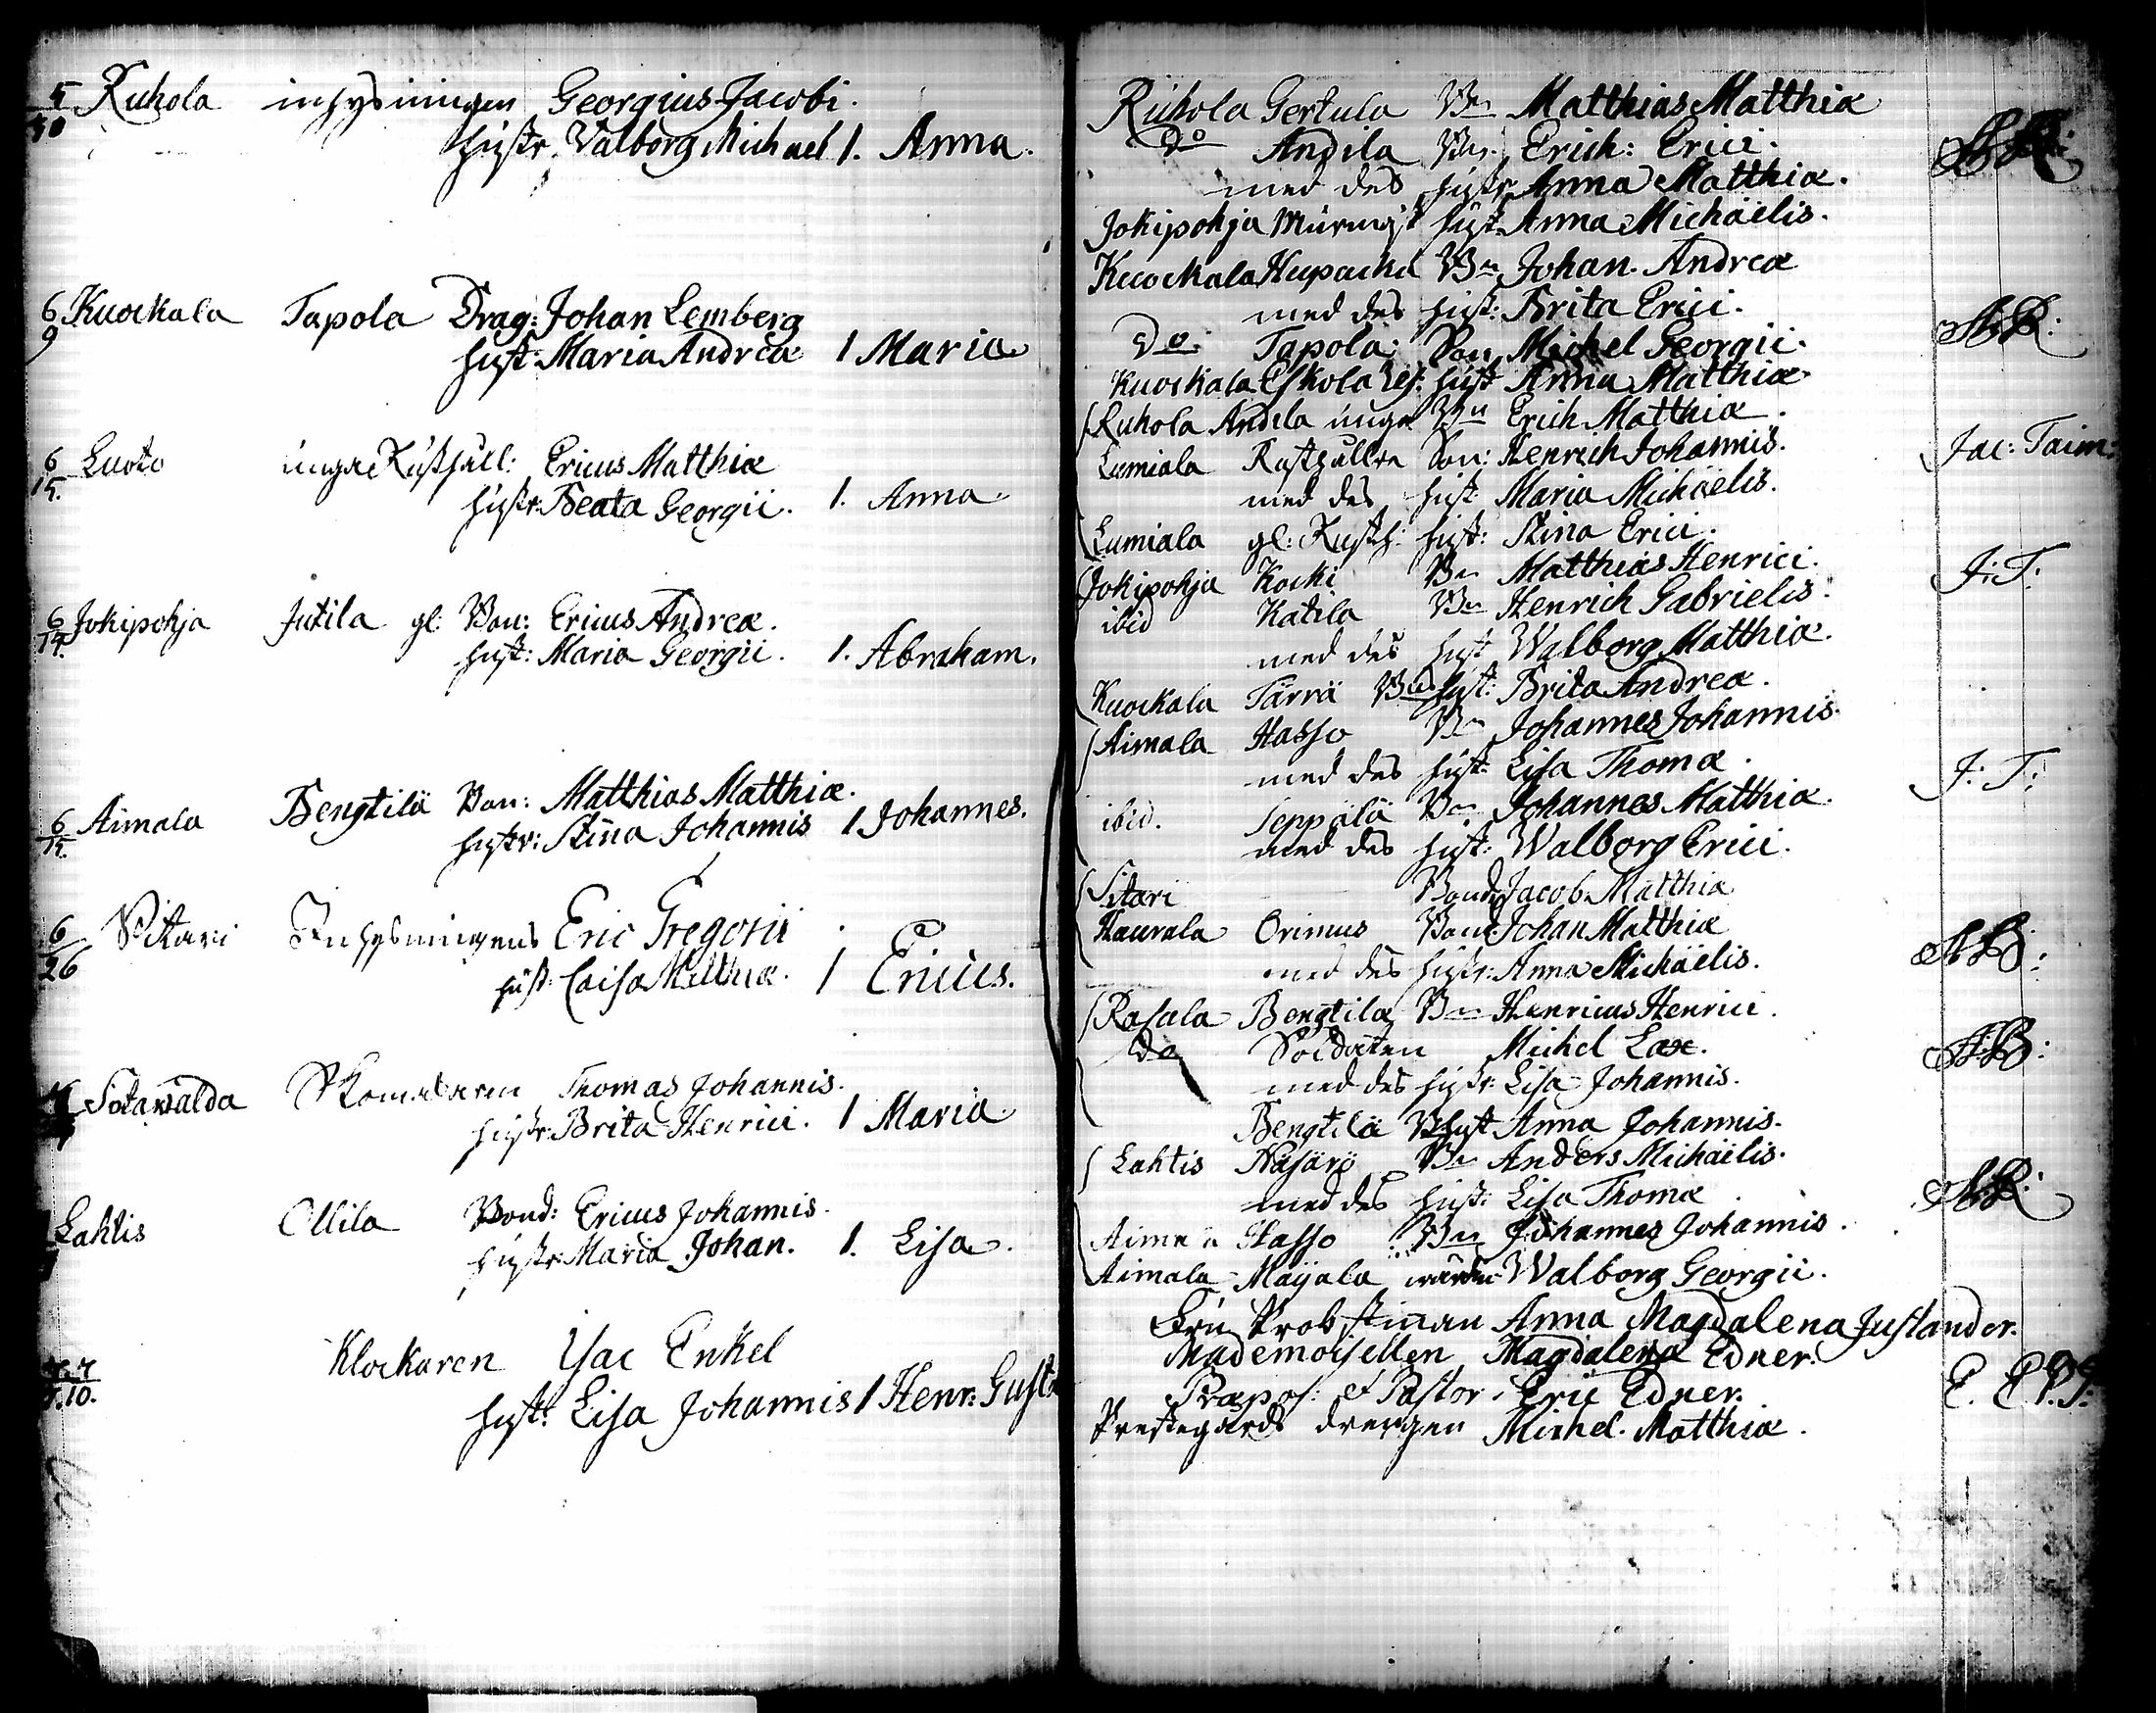 5 Ruhola inhysningen Georgius Jacobi.
30 hustr. Valborg Michael 1. Anna.
6 Kuockala Tapola Drag: Johan Lemberg
9 hust: Maria Andreæ 1 Maria
6 Luoto unga Rusth<span></span>åll: Ericus Matthiæ
15. hustr. Beata Georgii. 1. Anna.
6 Jokipohja Jutila gl: Bon: Ericus Andreæ.
hust: Maria Georgii. 1. Abraham.
6 Aimala Bengtilä Bon: Matthias Matthiæ.
hustr: Stina Johannis 1 Johannes.
6 Sitari Inhysningens Eric Gregorii
26 hust: Caisa Matthiæ. 1 Ericus.
Sotavalda Thomas Johannis.
hustr: Brita Henrici. 1 Maria
Lahtis Ollila Bond: Ericus Johannis.
hustr: Maria Johan. 1. Lisa.
Klockaren Isac Enkel
10. hust: Lisa Johannis 1 Henr: Gust
Ruhola Gertula Bn Matthias Matthiæ
Do Andila Bn. Erich: Erici.
med des hustr Anna Matthiæ.
Jokipohja hust. Anna Michaëlis.
Kuockala Bn Johan. Andreæ
med des hust: Brita Erici.
Do. Tapola: Bon Michel Georgii.
Kuockala Eskola hust Anna Matthiæ
Ruhola Andila unga Bn Erich Matthiæ.
Lumiala Rusthållre Son: Henrich Johannis. Jac: Taim:
med des hust: Maria Michaëlis.
Lumiala gl: Rusth: hust: Stina Erici.
Jokipohja Kocki Bn Matthias Henrici. J: T:
ibid Katila Bn Henrich Gabrielis.
med des hust Walborg Matthiæ.
Kuockala Tärrä hust: Brita Andreæ.
Aimala Hasso Bn Johannes Johannis.
med des hust: Lisa Thomæ. J: T:
ibid. Seppälä Bn Johannes Matthiæ.
med des hust: Walborg Erici.
Sitari Bond: Jacob Matthiæ
Haurala Orimus Bond: Johan Matthiæ
med des hustr: Anna Michaëlis.
Rasala Bengtila Bn Henricus Henrici.
do Soldaten Michel Lax.
med des hustr: Lisa Johannis.
Bengtilä Bhust Anna Johannis.
Lahtis Bn Anders Michaëlis.
med des hust: Lisa Thomæ
Hasso Bn Johannes Johannis.
Aimala Maijala Walborg Georgii.
Fru Probstinnan Anna Magdalena Juslander.
Mademoisellen Magdalena Edner.
Præpos: et Pastor. Eric Edner.
Prestegårds drengen Michel. Matthiæ.